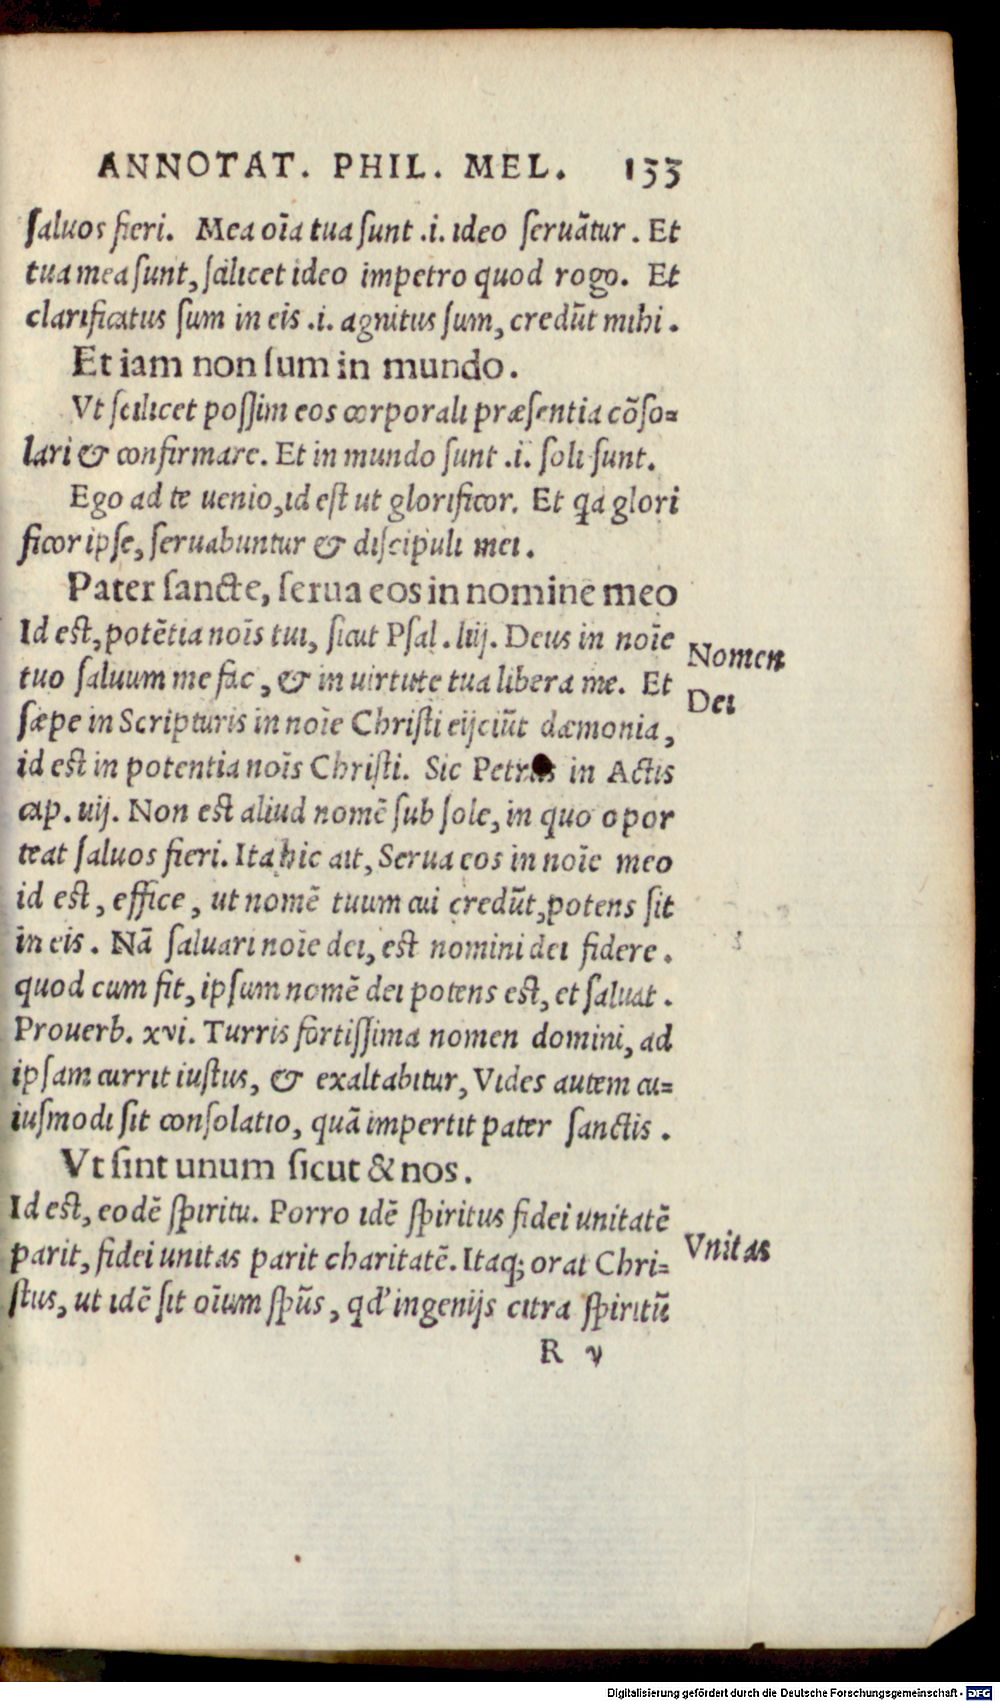 ANNOTAT. PHIL. MEL. 133
ſaluos fieri. Mea oĩa tua ſunt .i. ideo ſeruãtur. Et
tua mea ſunt, ſcilicet ideo impetro quod rogo. Et
clarificatus ſum in eis .i. agnitus ſum, credũt mihi.
Et iam non ſum in mundo.
Vt ſcilicet poſſim eos corporali præſentia cõſo=
lari & confirmare. Et in mundo ſunt .i. ſoli ſunt.
Ego ad te uenio, id eſt ut glorificor. Et qa glori
ficor ipſe, ſeruabuntur & diſcipuli mei.
Pater ſancte, ſerua eos in nomine meo
Id eſt, potẽtia noĩs tui, ſicut Pſal. liij. Deus in noĩe
Nomen
tuo ſaluum me fac, & in uirtute tua libera me. Et
Dei
ſæpe in Scripturis in noĩe Chriſti eijciũt dæmonia,
id eſt in potentia noĩs Chriſti. Sic Petrus in Actis
cap. iiij. Non eſt aliud nomẽ ſub ſole, in quo opor
teat ſaluos fieri. Ita hic ait, Serua eos in noĩe meo
id eſt, effice, ut nomẽ tuum cui credũt, potens ſit
in eis. Nã ſaluari noĩe dei, eſt nomini dei fidere.
quod cum fit, ipſum nomẽ dei potens eſt, et ſaluat.
Prouerb. xvi. Turris fortiſſima nomen domini, ad
ipſam currit iuſtus, & exaltabitur, Vides autem cu=
iuſmodi ſit conſolatio, quã impertit pater ſanctis.
Vt ſint unum ſicut & nos.
Id eſt, eodẽ ſpiritu. Porro idẽ ſpiritus fidei unitatẽ
parit, fidei unitas parit charitatẽ. Itaq; orat Chri=
Vnitas
ſtus, ut idẽ ſit oĩum ſpũs, qd' ingenijs citra ſpiritũ
R v
Digitalisierung gefördert durch die Deutsche Forschungsgemeinschaft - DFG